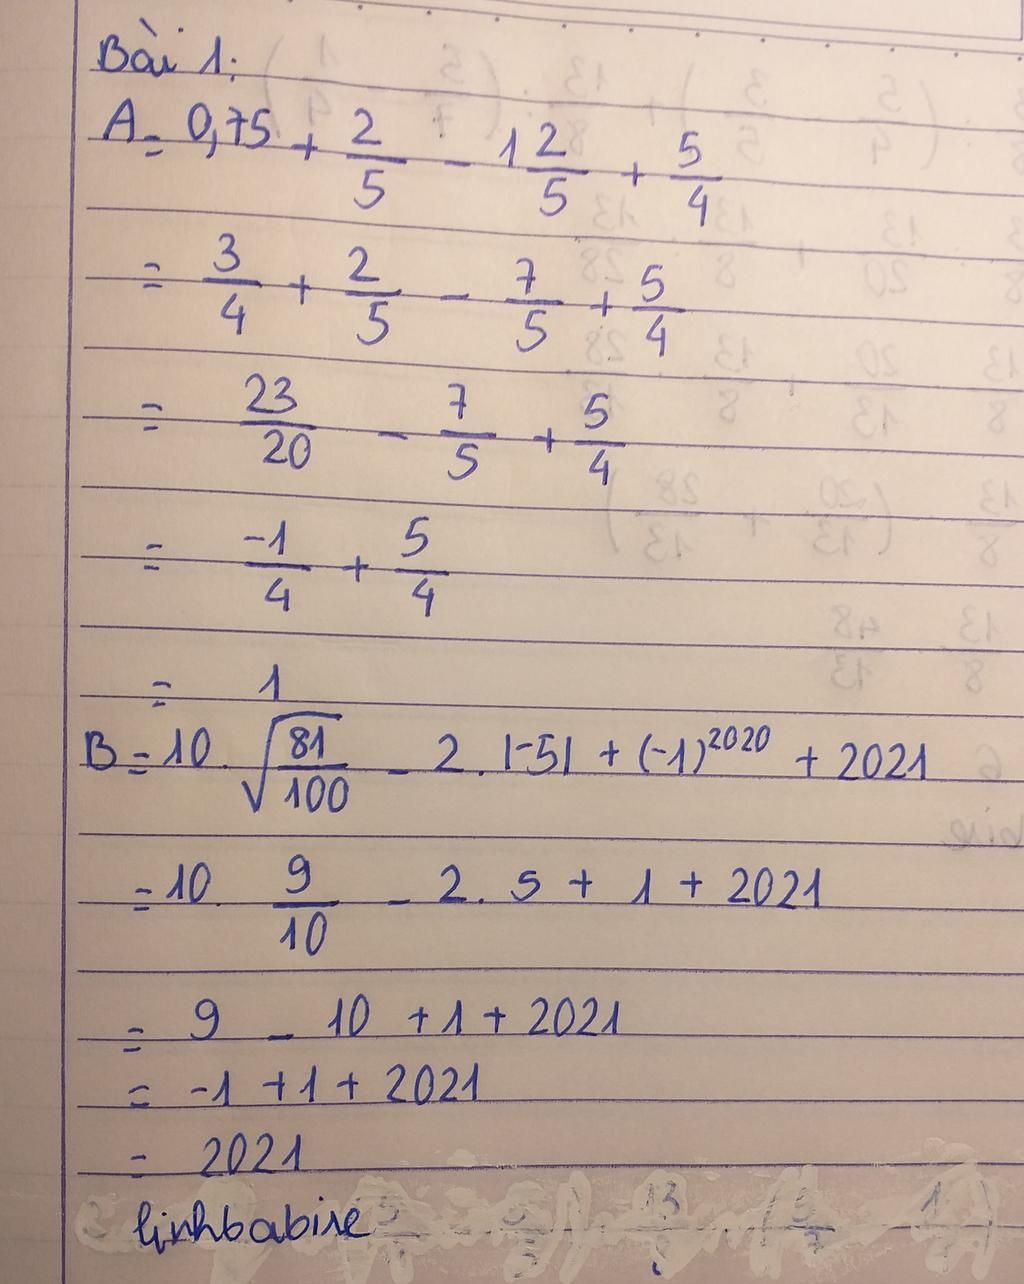 Bài 1:
A = 0,75 + 2/5 - 1 2/5 + 5/4
= 3/4 + 2/5 - 7/5 + 5/4
= 23/20 - 7/5 + 5/4
= -1/4 + 5/4
= 1
B = 10 . √(81/100) - 2 . |-5| + (-1)^2020 + 2021
= 10 . 9/10 - 2 . 5 + 1 + 2021
= 9 - 10 + 1 + 2021
= -1 + 1 + 2021
= 2021
linhbabire